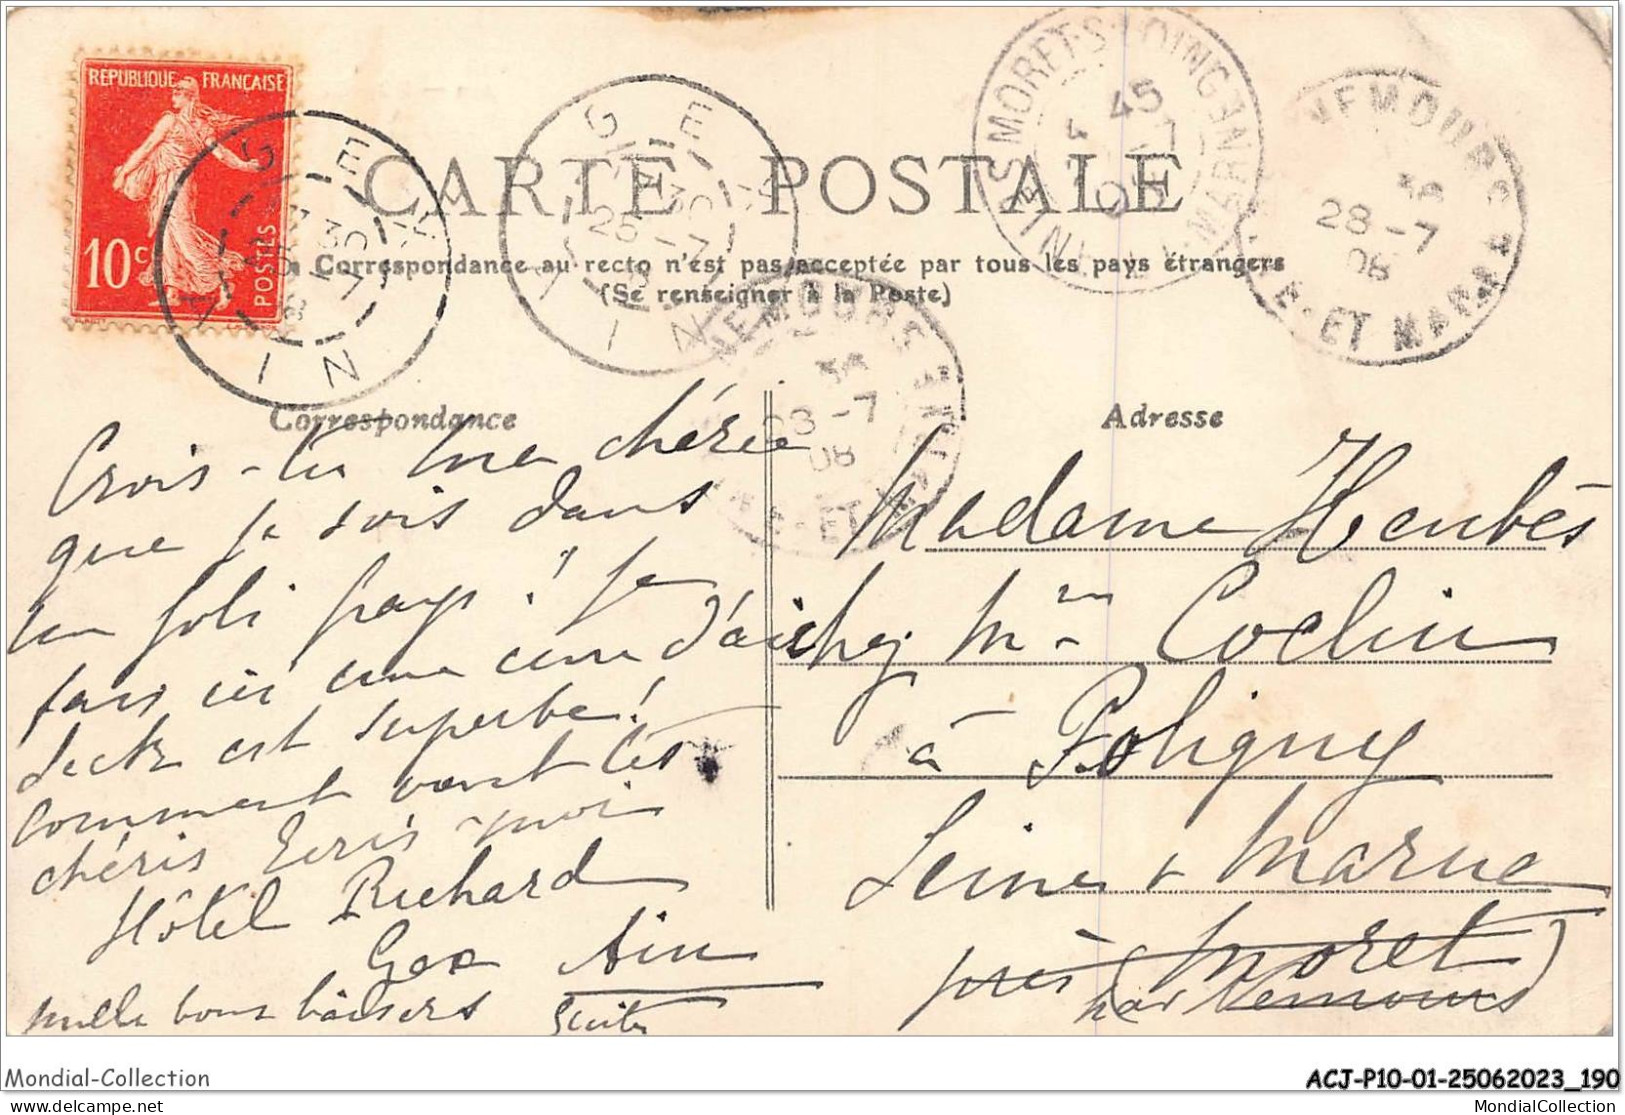 RÉPUBLIQUE FRANÇAISE
10c
POSTES
GEX
AIN
GEX
25 -7
AIN
MORET-S-LOING
45
SEINE-ET-MARNE
NEMOURS
28-7
08
E-ET MARNE
NEMOURS
28-7
08
CARTE POSTALE
La Correspondance au recto n'est pas acceptée par tous les pays étrangers
(Se renseigner à la Poste)
Correspondance
Adresse
Crois-tu ma chérie
que je suis dans
un joli pays! Je
fais ici une cure d'air
est superbe!
comment vont tes
chéris Ecris-moi
Hôtel Richard
Gex Ain
mille bons baisers
Madame Heubès
chez Mme Coclin
à Poligny
Seine & Marne
près Moret
(par Nemours)
Mondial-Collection
ACJ-P10-01-25062023_190
MondialCollection.com
MondialCollection